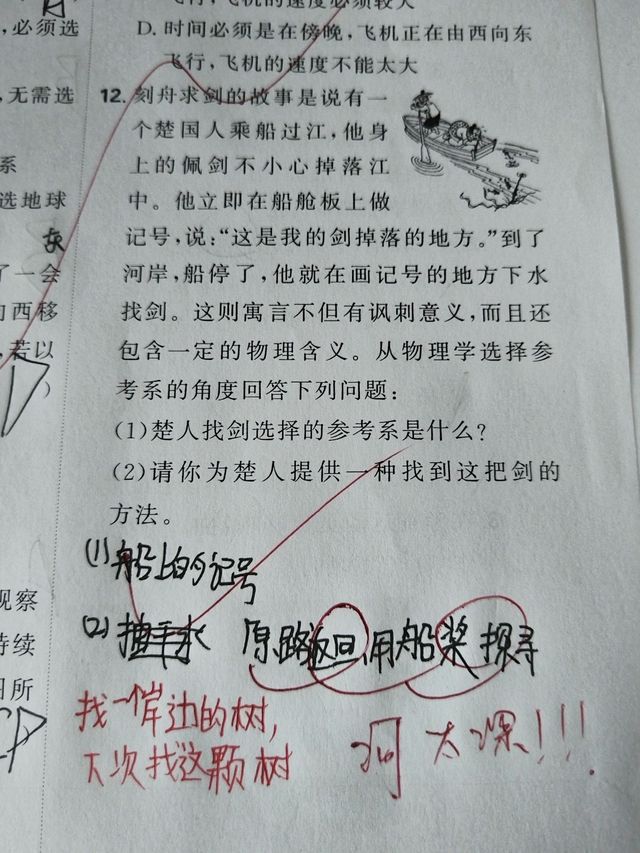 ,必须选
飞行,飞机的速度必须较大
D. 时间必须是在傍晚,飞机正在由西向东
飞行,飞机的速度不能太大
,无需选
系
选地球
东
了一会
向西移
,若以
)
观察
持续
日所
12. 刻舟求剑的故事是说有一
个楚国人乘船过江,他身
上的佩剑不小心掉落江
中。他立即在船舱板上做
记号,说:“这是我的剑掉落的地方。”到了
河岸,船停了,他就在画记号的地方下水
找剑。这则寓言不但有讽刺意义,而且还
包含一定的物理含义。从物理学选择参
考系的角度回答下列问题:
(1)楚人找剑选择的参考系是什么?
(2)请你为楚人提供一种找到这把剑的
方法。
(1)船上的记号
(2) 原路返回,用船桨探寻
找一个岸边的树,
下次找这颗树
河太深!!!